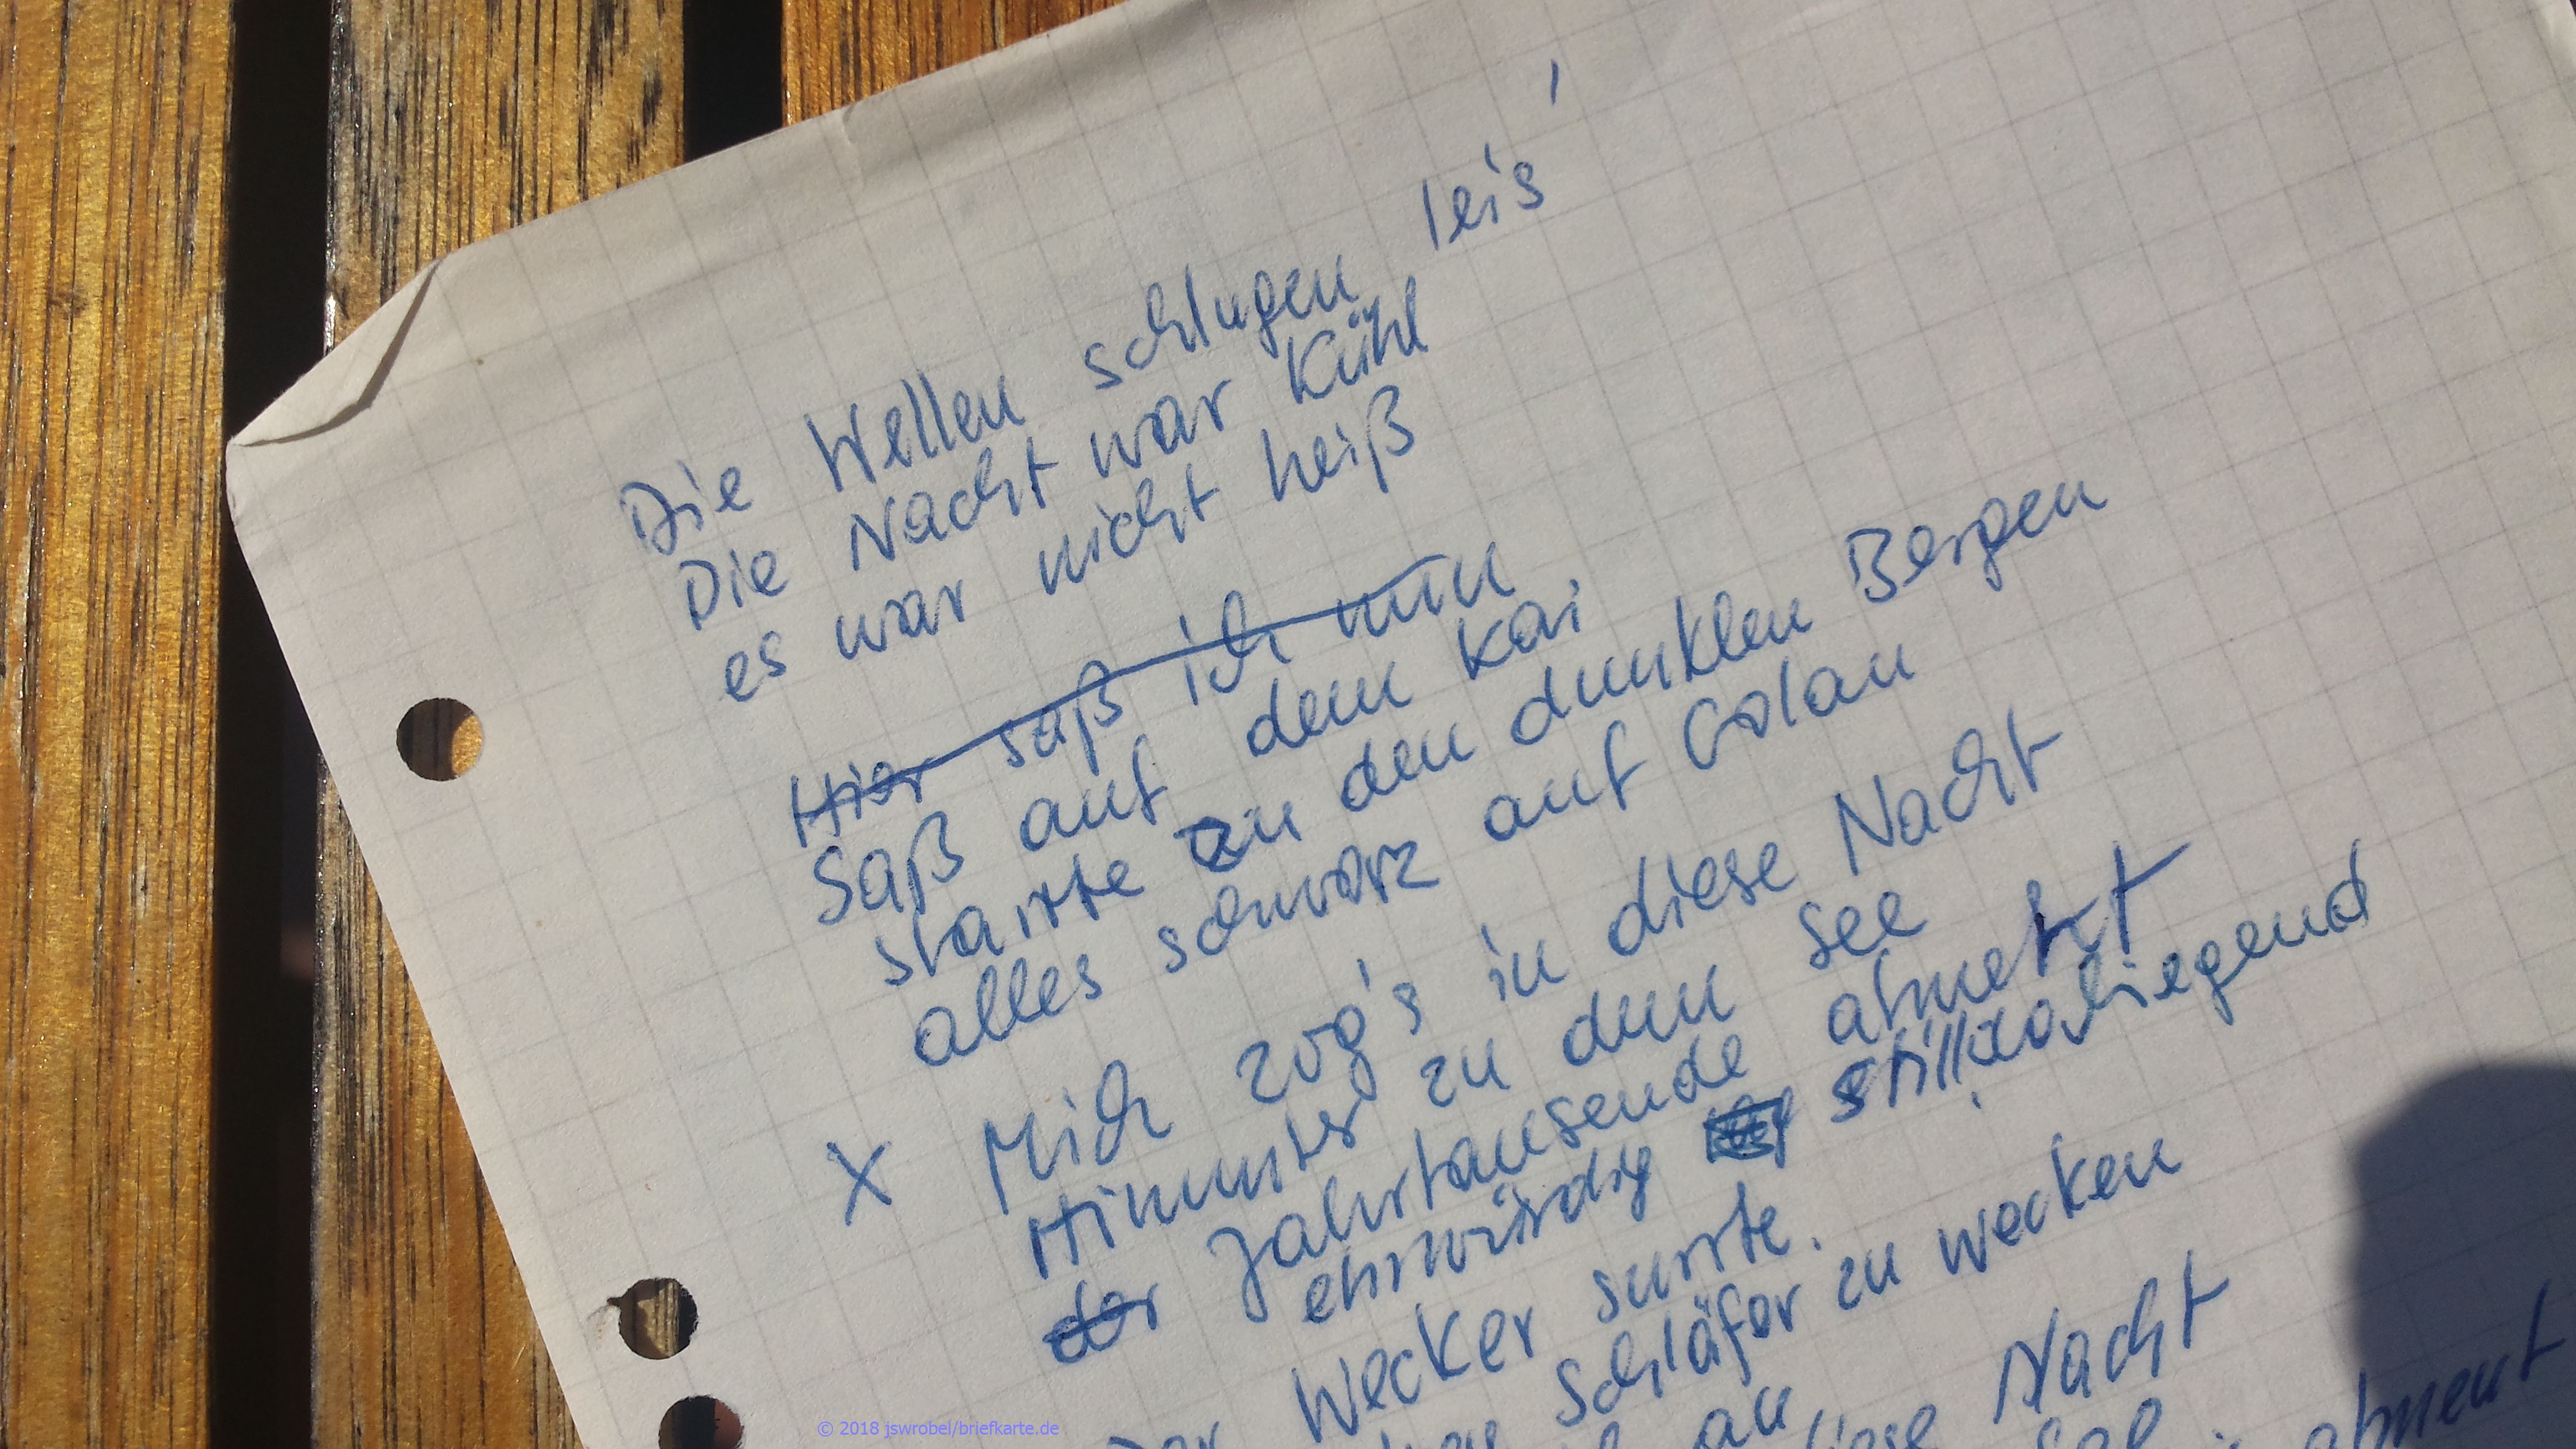 Die Wellen schlugen leis'
Die Nacht war kühl
es war nicht heiß
Hier saß ich nun
Saß auf dem Kai
starrte zu den dunklen Bergen
alles schwarz auf Golan
X Mich zog's in diese Nacht
Hinunter zu dem See
der Jahrtausende atmet
ehrwürdig still daliegend
Wecker surrte.
Schläfer zu wecken
an diese Nacht
See atment
© 2018 jswrobel/briefkarte.de